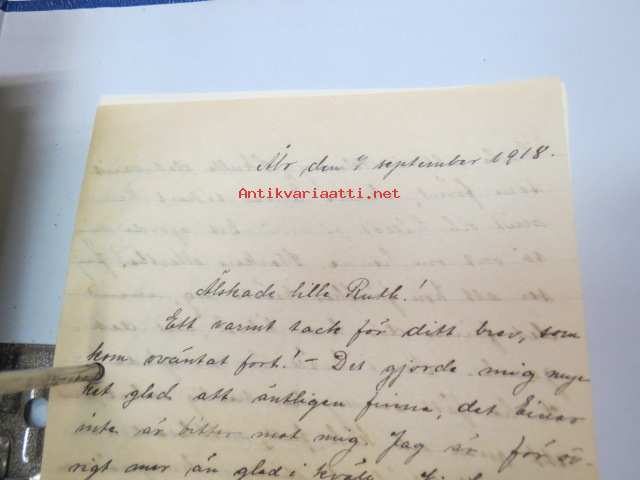 Åbo, den 7 september 1918.
Antikvariaatti.net
Älskade lilla Ruth!
Ett varmt tack för ditt brev, som
kom oväntat fort! – Det gjorde mig myc
ket glad att äntligen finna, det Einar
inte är bitter mot mig. Jag är för öv-
rigt mer än glad i kväll.